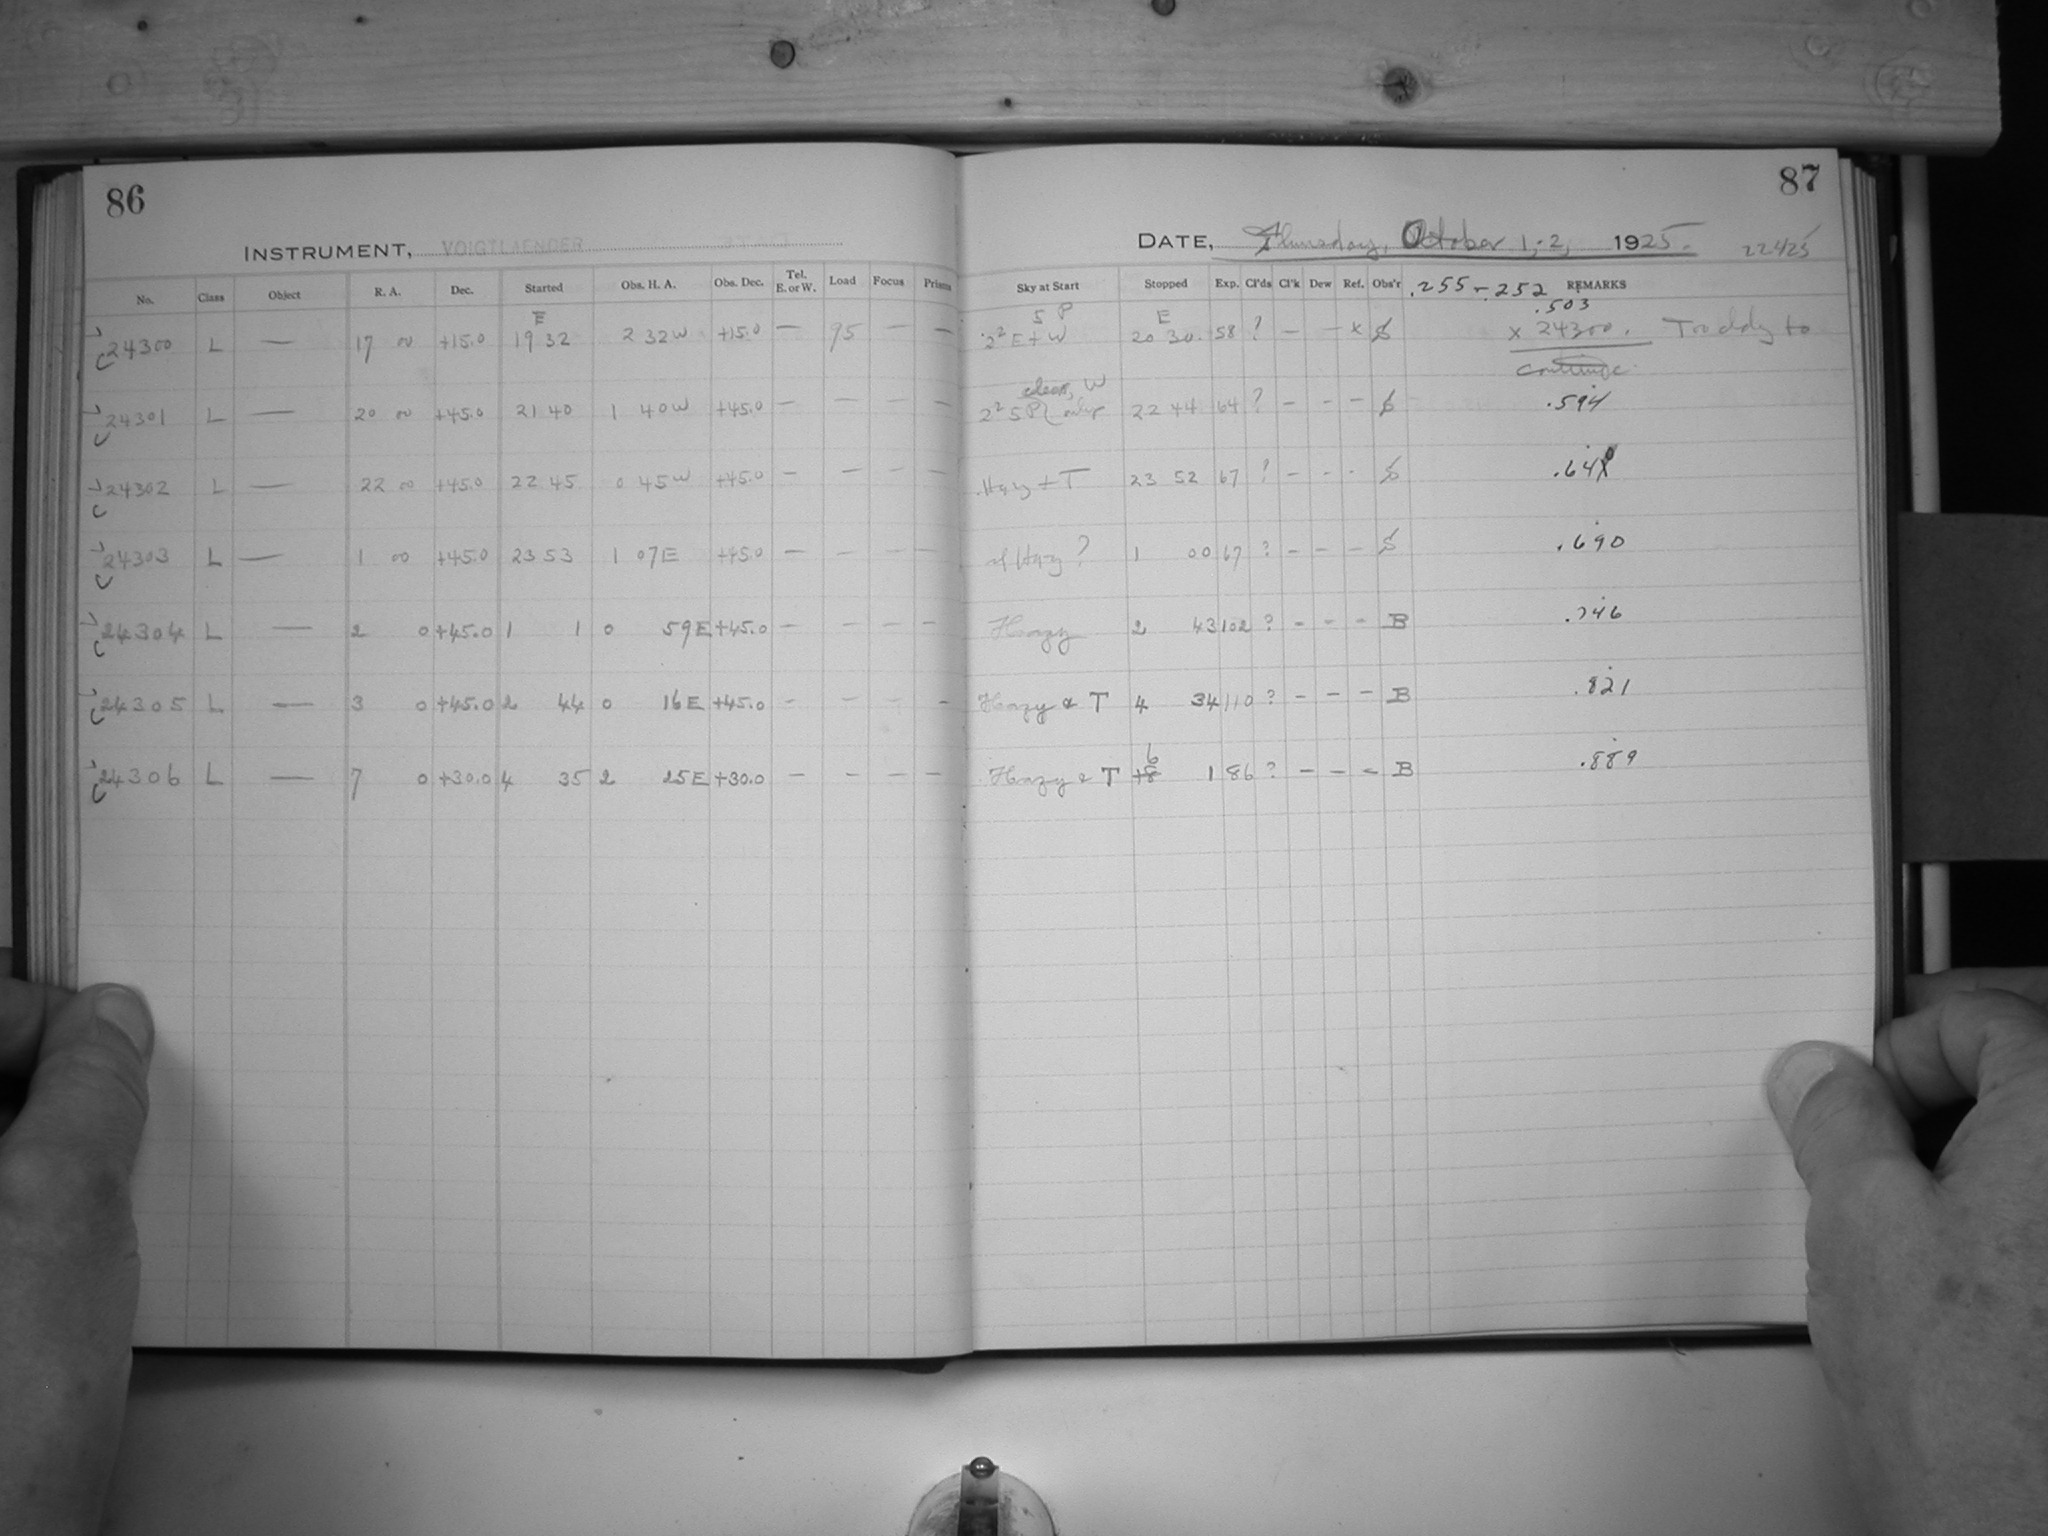 86
INSTRUMENT, VOIGTLAENDER
No. Class Object R. A. Dec. Started Obs. H. A. Obs. Dec. Tel. E. or W. Load Focus Prisms
E
24300 L — 17 00 +15.0 19 32 2 32W +15.0 — 95 — —
24301 L — 20 00 +45.0 21 40 1 40W +45.0 — — — —
24302 L — 22 00 +45.0 22 45 0 45W +45.0 — — — —
24303 L — 1 00 +45.0 23 53 1 07E +45.0 — — — —
24304 L — 2 0 +45.0 1 1 0 59E +45.0 — — — —
24305 L — 3 0 +45.0 2 44 0 16E +45.0 — — — —
24306 L — 7 0 +30.0 4 35 2 25E +30.0 — — — —
87
DATE, Thursday, October 1-2, 1925. 22425
Sky at Start Stopped Exp. Cl'ds Cl'k Dew Ref. Obs'r .255 - .252 REMARKS
5 P E .503
2² E + W 20 30. 58 ? — — x S x 24300. to
continue
clear, W
2² 5 P 22 44 64 ? — — — S .594
+ T 23 52 67 ? — — — S .640
? 1 00 67 ? — — — S .690
Hazy 2 43 102 ? — — — B .746
Hazy & T 4 34 110 ? — — — B .821
Hazy & T 6 1 86 ? — — — B .889